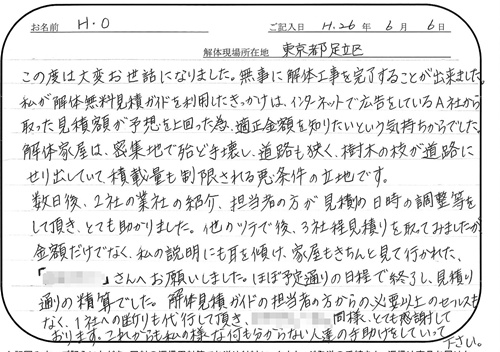 お名前 H・O ご記入日 H.26年 6月 6日
解体現場所在地 東京都足立区
この度は大変お世話になりました。無事に解体工事を完了することが出来ました。
私が解体無料見積ガイドを利用したきっかけは、インターネットで広告をしているA社から
取った見積額が予想を上回った為、適正金額を知りたいという気持ちからでした。
解体家屋は、密集地で殆ど手壊し、道路も狭く、樹木の枝が道路に
せり出していて、積載量も制限される悪条件の立地です。
数日後、2社の業社の紹介、担当者の方が見積り日時の調整等を
して頂き、とても助かりました。他のツテで後、3社程見積りを取ってみましたが
金額だけでなく、私の説明にも耳を傾け、家屋もきちんと見て行かれた、
「 」さんへお願いしました。ほぼ予定通りの日程で終了し、見積り
通りの精算でした。解体見積ガイドの担当者の方からの必要以上のセールスも
なく、1社への断りも代行して頂き、 同様、とても感謝して
おります。これからも私の様な何も分からない人達の手助けをしていって
下さい。